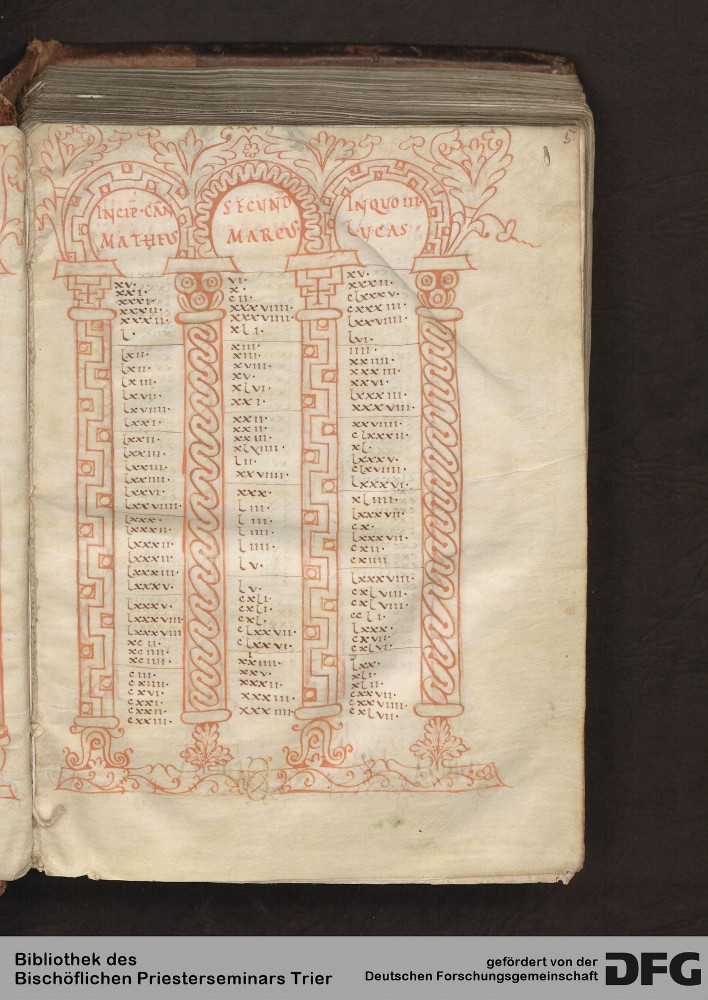 INCIP CAN
MATHEVS
SECVND
MARCVS
IN QVO III
LVCAS
5
xv·
xxi·
xxxi·
xxxii·
xxxii·
l·
lxii·
lxii·
lxiii·
lxvii·
lxviiii·
lxxi·
lxxii·
lxxiii·
lxxiii·
lxxiiii·
lxxvi·
lxxviiii·
lxxx·
lxxxii·
lxxxii·
lxxxii·
lxxxiii·
lxxxv·
lxxxv·
lxxxviii
lxxxviii
xcii·
xciiii·
xciiii·
ciii·
cxiiii·
cxvi·
cxxi·
cxxii·
cxxiii·
vi·
x·
cii·
xxxviiii·
xxxviiii·
xli·
xiii·
xiii·
xviii·
xv·
xlvi·
xxi·
xxii·
xxii·
xxiii·
xlviiii·
lii·
xxviiii·
xxx·
liii·
liii·
liiii·
liiii·
lv·
lv·
cxli·
cxli·
cxl·
clxxvii·
clxxvi·
xxiiii·
xxv·
xxxii·
xxxiii·
xxxiiii·
xv·
xxxii·
clxxxv·
cxxxiii·
lxxviiii·
lvi·
iiii·
xxiiii·
xxxiii·
xxvi·
lxxxiii·
xxxviii·
xxviiii·
clxxxii·
xl·
lxxxv·
clxviii·
lxxxvi·
xliiii·
lxxxvii·
cx·
lxxxvii·
cxii·
cxiiii
lxxxviii·
cxlviii·
cxlviii·
ccli·
lxxx·
cxvii·
cxlvi·
lxx·
xli·
xlii·
cxxvii·
cxxviiii·
cxlvii·
Bibliothek des
Bischöflichen Priesterseminars Trier
gefördert von der
Deutschen Forschungsgemeinschaft
DFG